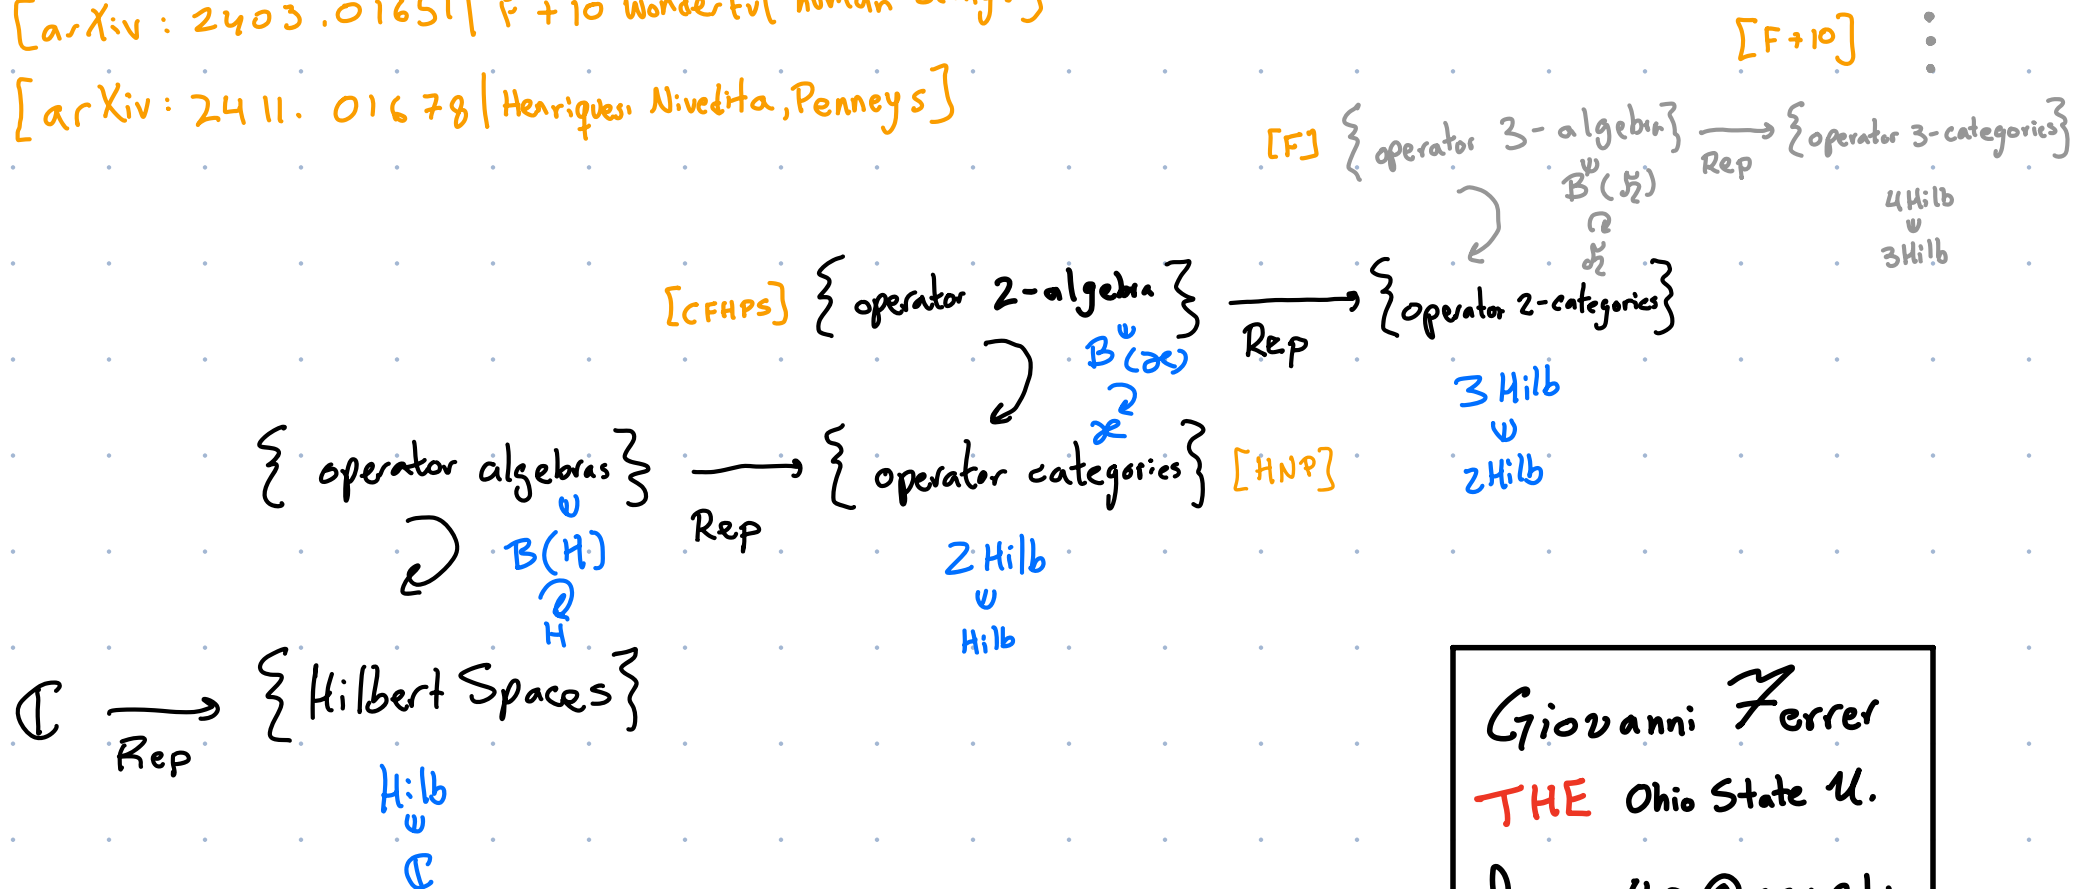 [arXiv: 2403.01651| F+10 wonderful human beings]
[F+10]
[arXiv: 2411.01678| Henriques, Nivedita, Penneys]
[F] {operator 3-algebra} Rep {operator 3-categories}
B(ℌ)
ℌ
4Hilb
3Hilb
[CFHPS] {operator 2-algebra} Rep {operator 2-categories}
B(ℋ)
ℋ
3Hilb
2Hilb
{operator algebras} Rep {operator categories} [HNP]
B(H)
H
2Hilb
Hilb
ℂ Rep {Hilbert Spaces}
Hilb
ℂ
Giovanni Ferrer
THE Ohio State U.